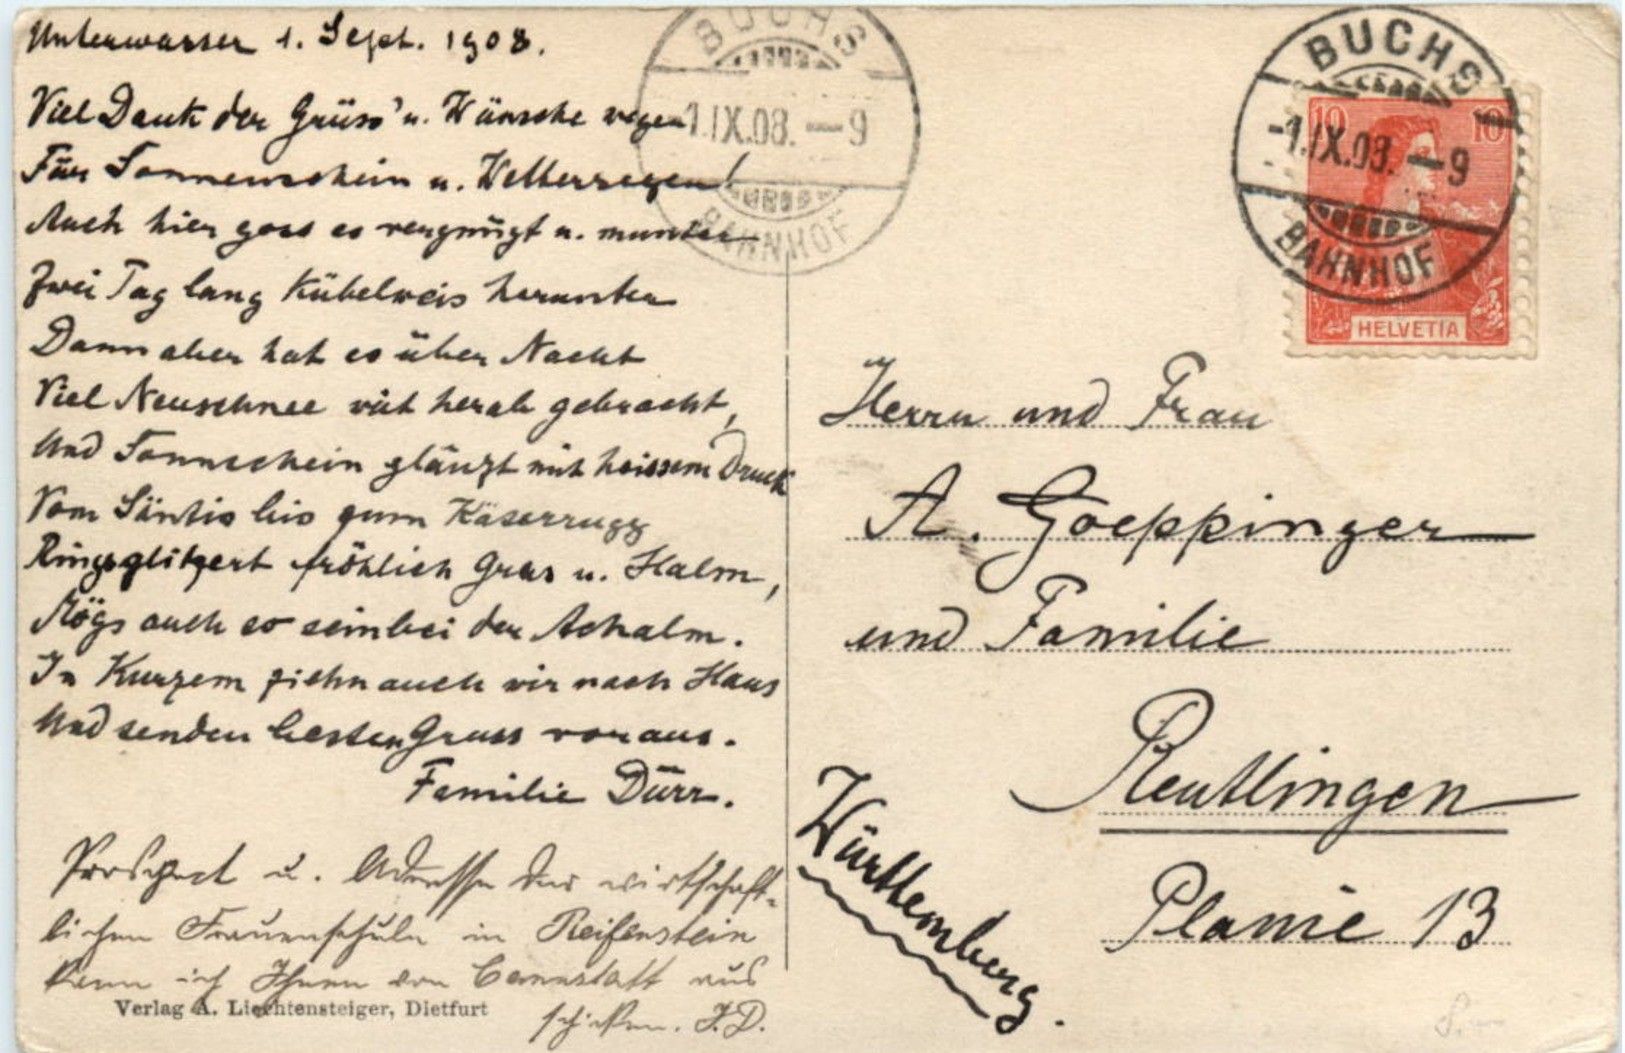 Unterwasser 1. Sept. 1908.
Viel Dank der Grüss' u. Wünsche wegen
Für Sonnenschein u. Wetterregen!
Auch hier goss es vergnügt u. munter
Zwei Tag lang Kübelweis herunter
Dann aber hat es über Nacht
Viel Neuschnee mit herab gebracht,
Und Sonnschein glänzt mit heissem Druck
Vom Säntis bis zum Käserrugg
Rings glitzert fröhlich Gras u. Halm,
Mögs auch so sein bei der Achalm.
In Kurzem ziehn auch wir nach Haus
Und senden besten Gruss voraus.
Familie Dürr.
Prospect u. Adresse der wirtschaft-
lichen Frauenschule in Reifenstein
kann ich Ihnen von Cannstatt aus
schicken. J. D.
Verlag A. Liechtensteiger, Dietfurt
BUCHS
1.IX.08. – 9
BAHNHOF
BUCHS
-1.IX.08. – 9
BAHNHOF
10 10
HELVETIA
Herrn und Frau
A. Goeppinger
und Familie
Reutlingen
Württemberg.
Planie 13